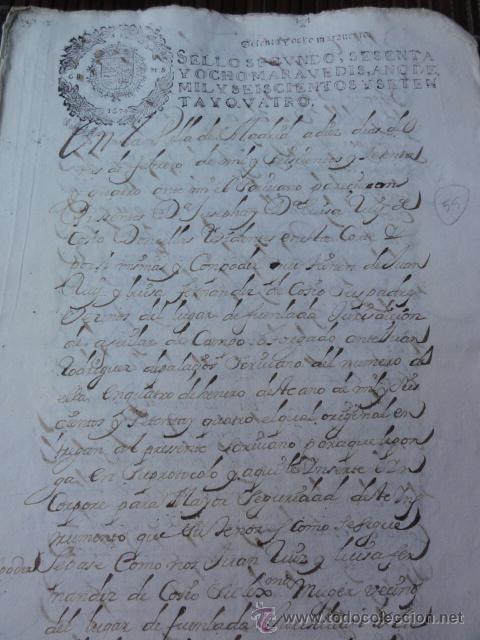 Sesenta y ocho maravedis
SELLO SEGVNDO, SESENTA
Y OCHO MARAVEDIS, AÑO DE
MIL Y SEISCIENTOS Y SETEN
TA Y QVATRO.
En la Villa de Madrid a diez dias del
mes de febrero de mil y seiscientos y setenta
y quatro ante mi el scrivano parecieron
presentes Da Josepha y Da Luisa Ruiz de
55
Cosio Donzellas residentes en esta Corte
por si mismas y Con poder que tienen de Juan
Ruiz y luisa fernandez de Cosio sus padres
vecinos del lugar de fuenlada Jurisdicion
de aguilar de Campo, otorgado ante Juan
Rodriguez de palacios scrivano del numero de
ella en quatro de henero deste ano de mil y seis
cientos y setenta y quatro el qual original en
tregan al presente scrivano para que le pon
ga en su protocolo y aqui le Inserte e In
Corpore para Mayor seguridad deste Ins
trumento que su tenor es Como se sigue
poder
Sepase Como nos Juan Ruiz y luisa fer
nandez de Cosio su lexma Muger vecinos
del lugar de fuenlada
todocoleccion.net